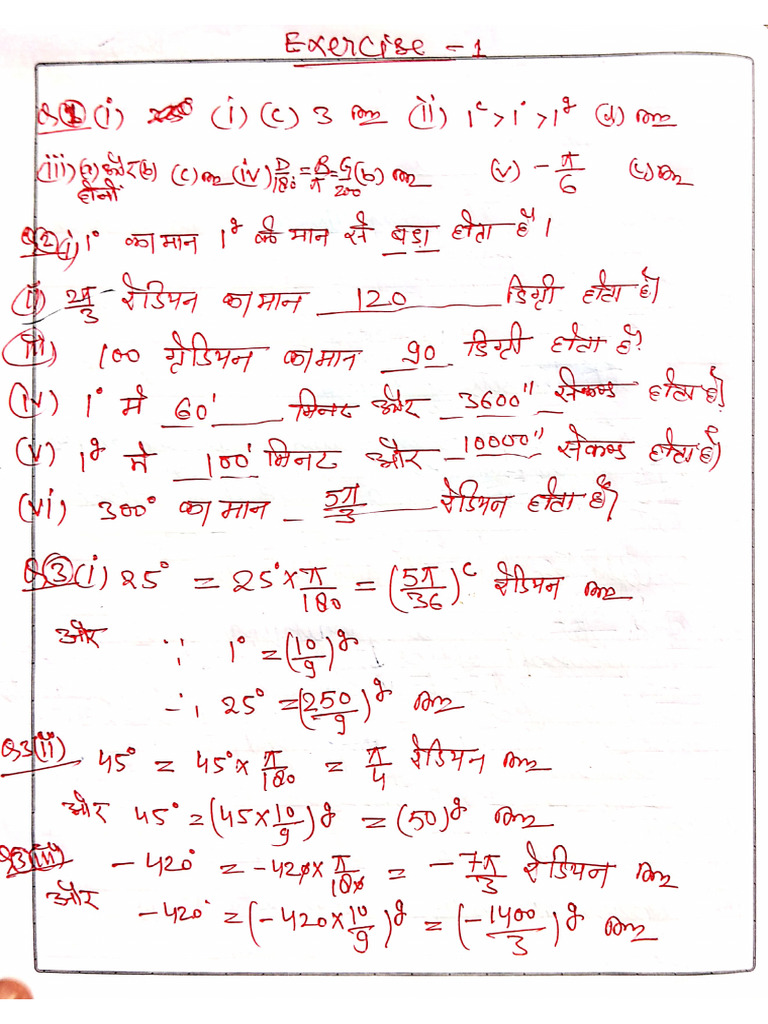 Exercise - 1
Q1 (i) (i) (c) 3 Ans (ii) 1ᶜ > 1° > 1ᵍ (d) Ans
(iii) (a) और (b) दोनों (c) Ans (iv) D/180 = R/π = G/200 (b) Ans (v) - π/6 (c) Ans
Q2 (i) 1° का मान 1ᵍ के मान से बड़ा होता है।
(ii) 2π/3 रेडियन का मान 120 डिग्री होता है।
(iii) 100 ग्रेडियन का मान 90 डिग्री होता है।
(iv) 1° मे 60' मिनट और 3600" सेकण्ड होता है।
(v) 1ᵍ मे 100' मिनट और 10000" सेकण्ड होता है।
(vi) 300° का मान 5π/3 रेडियन होता है।
Q3 (i) 25° = 25° × π/180 = (5π/36)ᶜ रेडियन Ans
और ∵ 1° = (10/9)ᵍ
∴ 25° = (250/9)ᵍ Ans
Q3 (ii) 45° = 45° × π/180 = π/4 रेडियन Ans
और 45° = (45 × 10/9)ᵍ = (50)ᵍ Ans
Q3 (iii) -420° = -420 × π/180 = - 7π/3 रेडियन Ans
और -420° = (-420 × 10/9)ᵍ = (-1400/3)ᵍ Ans